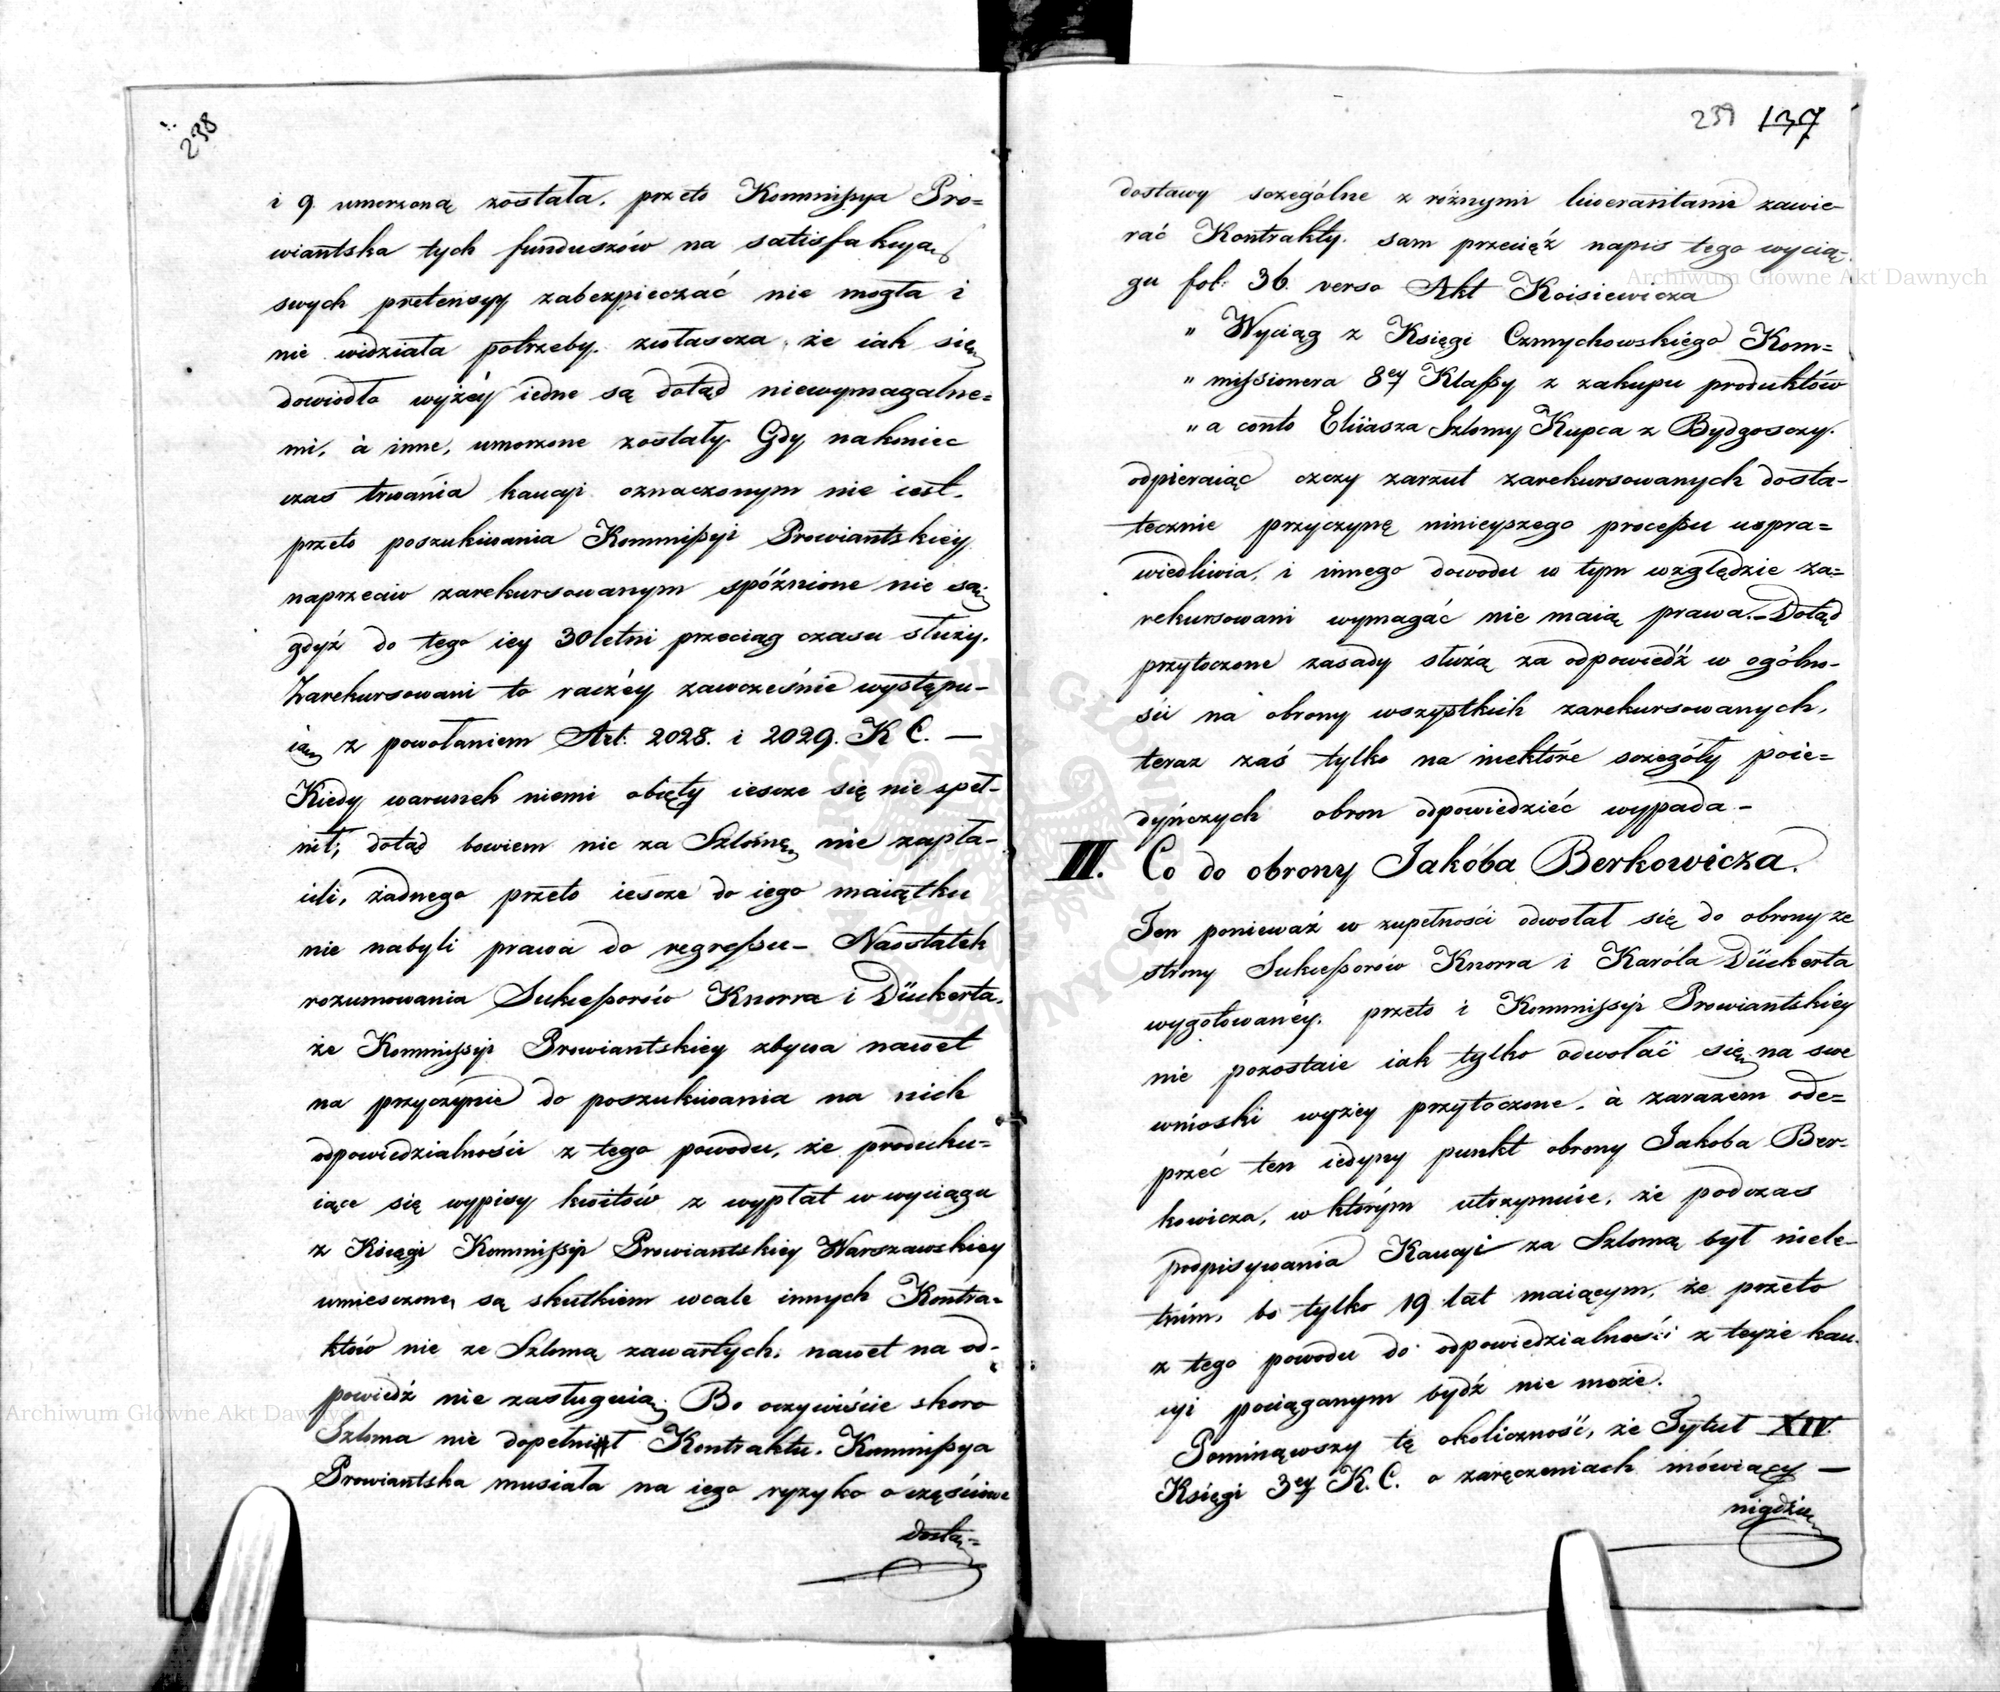 238
i 9. umorzoną została, przeto Kommissya Pro=
wiantska tych funduszów na satisfakcyą
swych pretensyy zabezpieczać nie mogła i
nie widziała potrzeby, zwłascza, że iak się
dowiodło wyżéy iedne są dotąd niewymagalne=
mi, à inne, umorzone zostały. Gdy nakoniec
czas trwania kaucyi oznaczonym nie iest,
przeto poszukiwania Kommissyi Prowiantskiey
naprzeciw zarekursowanym spóźnione nie są,
gdyż do tego iey 30letni przeciąg czasu służy.
Zarekursowani to raczéy zawcześnie występu-
ią z powołaniem Art: 2028. i 2029. K C. —
Kiedy warunek niemi obięty iescze się nie speł-
nił; dotąd bowiem nic za Szlomę nie zapła-
cili, żadnego przeto iescze do iego maiątku
nie nabyli prawa do regressu — Naostatek
rozumowania Sukcessorów Knorra i Dückerta,
że Kommissyi Prowiantskiey zbywa nawet
na przyczynie do poszukiwania na nich
odpowiedzialności z tego powodu, że produku=
iące się wypisy kwitów z wypłat w wyciągu
z Księgi Kommissyi Prowiantskiey Warszawskiey
umiesczone, są skutkiem wcale innych Kontra=
któw nie ze Szlomą zawartych, nawet na od-
powiedź nie zasługuią. Bo oczywiście skoro
Szloma nie dopełnił Kontraktu, Kommissya
Prowiantska musiała na iego ryzyko o częściowe
dosta=
239 137
dostawy sczególne z różnymi liwerantami zawie-
rać Kontrakty, sam przecięż napis tego wycią-
gu fol: 36. verso Akt Koisiewicza
" Wyciąg z Księgi Czmychowskiégo Kom=
" missionera 8ey Klassy z zakupu produktów
" a conto Eliiasza Szlomy Kupca z Bydgosczy.
odpieraiąc czczy zarzut zarekursowanych dosta-
tecznie przyczynę ninieyszego processu uspra=
wiedliwia, i innego dowodu w tym względzie za=
rekursowani wymagać nie maią prawa. — Dotąd
przytoczone zasady służą za odpowiedź w ogólno-
ści na obrony wszystkich zarekursowanych,
teraz zaś tylko na niektóre sczegóły poie=
dyńczych obron odpowiedzieć wypada —
II. Co do obrony Jakóba Berkowicza.
Ten ponieważ w zupełności odwołał się do obrony ze
strony Sukcessorów Knorra i Karóla Dückerta
wygotowanéy, przeto i Kommissyi Prowiantskiey
nie pozostaie iak tylko odwołać się na swe
wnioski wyżey przytoczone, à zarazem ode=
przeć ten iedyny punkt obrony Jakoba Ber-
kowicza, w którym utrzymuie, że podczas
podpisywania Kaucyi za Szlomą był niele-
tnim, bo tylko 19 lat maiącym, że przeto
z tego powodu do odpowiedzialności z teyże kau-
cyi pociąganym bydź nie może.
Pominąwszy tę okoliczność, że Tytuł XIV.
Księgi 3ey K. C. o zaręczeniach mówiący —
nigdzie
Archiwum Główne Akt Dawnych
Archiwum Główne Akt Dawnych